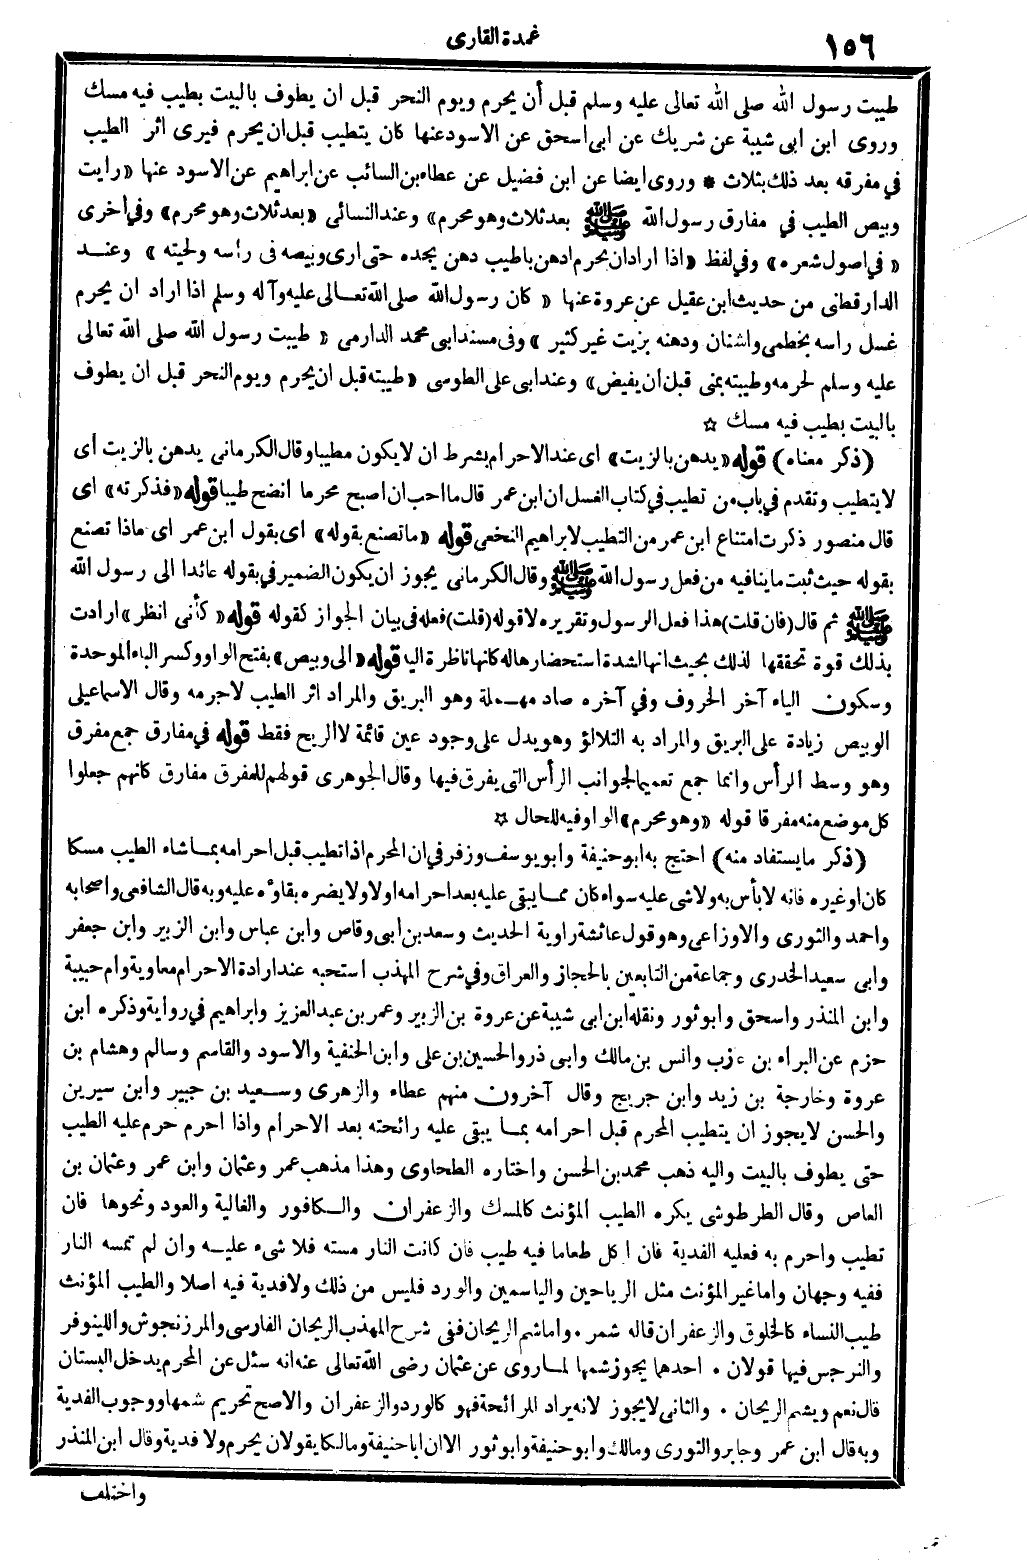 ١٥٦
عمدة القارى
طيبت رسول الله صلى الله تعالى عليه وسلم قبل أن يحرم ويوم النحر قبل ان يطوف بالبيت بطيب فيه مسك
وروى ابن ابى شيبة عن شريك عن ابى اسحق عن الاسود عنها كان يتطيب قبل ان يحرم فيرى اثر الطيب
في مفرقه بعد ذلك بثلاث * وروى ايضا عن ابن فضيل عن عطاء بن السائب عن ابراهيم عن الاسود عنها «رايت
وبيص الطيب في مفارق رسول الله ﷺ بعد ثلاث وهو محرم» وعند النسائى «بعد ثلاث وهو محرم» وفي أخرى
«في اصول شعره» وفي لفظ «اذا اراد ان يحرم ادهن باطيب دهن يجده حتى ارى وبيصه فى رأسه ولحيته» وعنـد
الدارقطنى من حديث ابن عقيل عن عروة عنها «كان رسول الله صلى الله تعالى عليه وآله وسلم اذا اراد ان يحرم
غسل راسه بخطمى واشنان ودهنه بزيت غير كثير» وفى مسند ابى محمد الدارمى «طيبت رسول الله صلى الله تعالى
عليه وسلم لحرمه وطيبته بمنى قبل أن يفيض» وعند ابى على الطوسى «طيبته قبل ان يحرم ويوم النحر قبل ان يطوف
بالبيت بطيب فيه مسك ☆
(ذكر معناه) قوله «يدهن بالزيت» اى عند الاحرام بشرط ان لا يكون مطيبا وقال الكرمانى يدهن بالزيت أى
لا يتطيب وتقدم في باب من تطيب في كتاب الغسل ان ابن عمر قال ما احب ان اصبح محرما انضح طيبا قوله «فذكرته» اى
قال منصور ذكرت امتناع ابن عمر من التطيب لابراهيم النخعى قوله «ما تصنع بقوله» اى بقول ابن عمر اى ماذا تصنع
بقوله حيث ثبت ما ينافيه من فعل رسول الله ﷺ وقال الكرمانى يجوز ان يكون الضمير في بقوله عائدا الى رسول الله
ﷺ ثم قال (فان قلت) هذا فعل الرسول وتقريره لا قوله (قلت) فعله فى بيان الجواز كقوله قوله «كأنى انظر» ارادت
بذلك قوة تحققها لذلك بحيث انها لشدة استحضارها له كانها ناظرة اليه قوله «الى وبيص» بفتح الواو وكسر الباء الموحدة
وسكون الياء آخر الحروف وفي آخره صاد مهـملة وهو البريق والمراد اثر الطيب لا جرمه وقال الاسماعيلى
الوبيص زيادة على البريق والمراد به التلالؤ وهو يدل على وجود عين قائمة لا الريح فقط قوله في مفارق جمع مفرق
وهو وسط الرأس وانما جمع تعميما لجوانب الرأس التى يفرق فيها وقال الجوهرى قولهم للمفرق مفارق كانهم جعلوا
كل موضع منه مفرقا قوله «وهو محرم» الواو فيه للحال ☆
(ذكر ما يستفاد منه) احتج به ابو حنيفة وابو يوسف وزفر في ان المحرم اذا تطيب قبل احرامه بمـا شاء الطيب مسكا
كان او غيره فانه لا بأس به ولا شى عليه سواء كان ممـا يبقى عليه بعد احرامه اولا ولا يضره بقاؤه عليه وبه قال الشافعى واصحابه
واحمد والثورى والاوزاعى وهو قول عائشة راوية الحديث وسعد بن ابى وقاص وابن عباس وابن الزبير وابن جعفر
وابى سعيد الخدرى وجماعة من التابعين بالحجاز والعراق وفي شرح المهذب استحبه عند ارادة الاحرام معاوية وام حبيبة
وابن المنذر واسحق وابو ثور ونقله ابن ابى شيبة عن عروة بن الزبير وعمر بن عبد العزيز وابراهيم في رواية وذكره ابن
حزم عن البراء بن عازب وانس بن مالك وابى ذر والحسين بن على وابن الحنفية والاسود والقاسم وسالم وهشام بن
عروة وخارجة بن زيد وابن جريج وقال آخرون منهم عطاء والزهرى وسـعيد بن جبير وابن سيرين
والحسن لا يجوز ان يتطيب المحرم قبل احرامه بمـا يبقى عليه رائحته بعد الاحرام واذا احرم حرم عليه الطيب
حتى يطوف بالبيت واليه ذهب محمد بن الحسن واختاره الطحاوى وهذا مذهب عمر وعثمان وابن عمر وعثمان بن
العاص وقال الطرطوشى يكره الطيب المؤنث كالمسك والزعفران والـكافور والغالية والعود ونحوها فان
تطيب واحرم به فعليه الفدية فان اكل طعاما فيه طيب فان كانت النار مسته فلا شىء عليـه وان لم تمسه النار
ففيه وجهان واما غير المؤنث مثل الرياحين والياسمين والورد فليس من ذلك ولا فدية فيه اصلا والطيب المؤنث
طيب النساء كالخلوق والزعفران قاله شمر . واما شم الريحان ففى شرح المهذب الريحان الفارسى والمرزنجوش واللينوفر
والنرجس فيها قولان . احدهما يجوز شمها لمـا روى عن عثمان رضى الله تعالى عنه انه سئل عن المحرم يدخل البستان
قال نعم ويشم الريحان . والثانى لا يجوز لانه يراد للرائحة فهو كالورد والزعفران والاصح تحريم شمها ووجوب الفدية
وبه قال ابن عمر وجابر والثورى ومالك وابو حنيفة وابو ثور الا ان ابا حنيفة ومالكا يقولان يحرم ولا فدية وقال ابن المنذر
واختلف